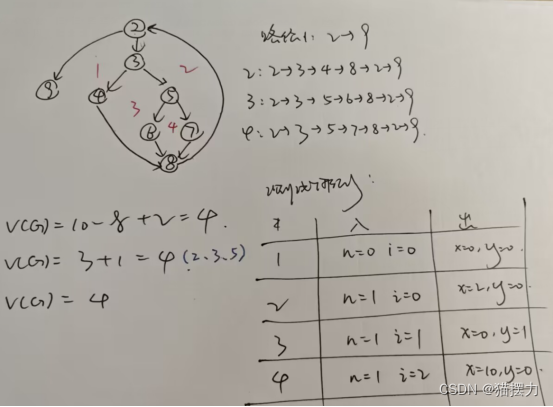 2
3
1
2
9
4
5
3
6
4
7
8
路径1: 2→9
2: 2→3→4→8→2→9
3: 2→3→5→6→8→2→9
4: 2→3→5→7→8→2→9.
V(G)=10-8+2=4.
V(G)=3+1=4(2.3.5)
V(G)=4
测试用例:
入 出
1 n=0 i=0 x=0,y=0.
2 n=1 i=0 x=2,y=0.
3 n=1 i=1 x=0,y=1
4 n=1 i=2 x=10,y=0
CSDN @猫摆力